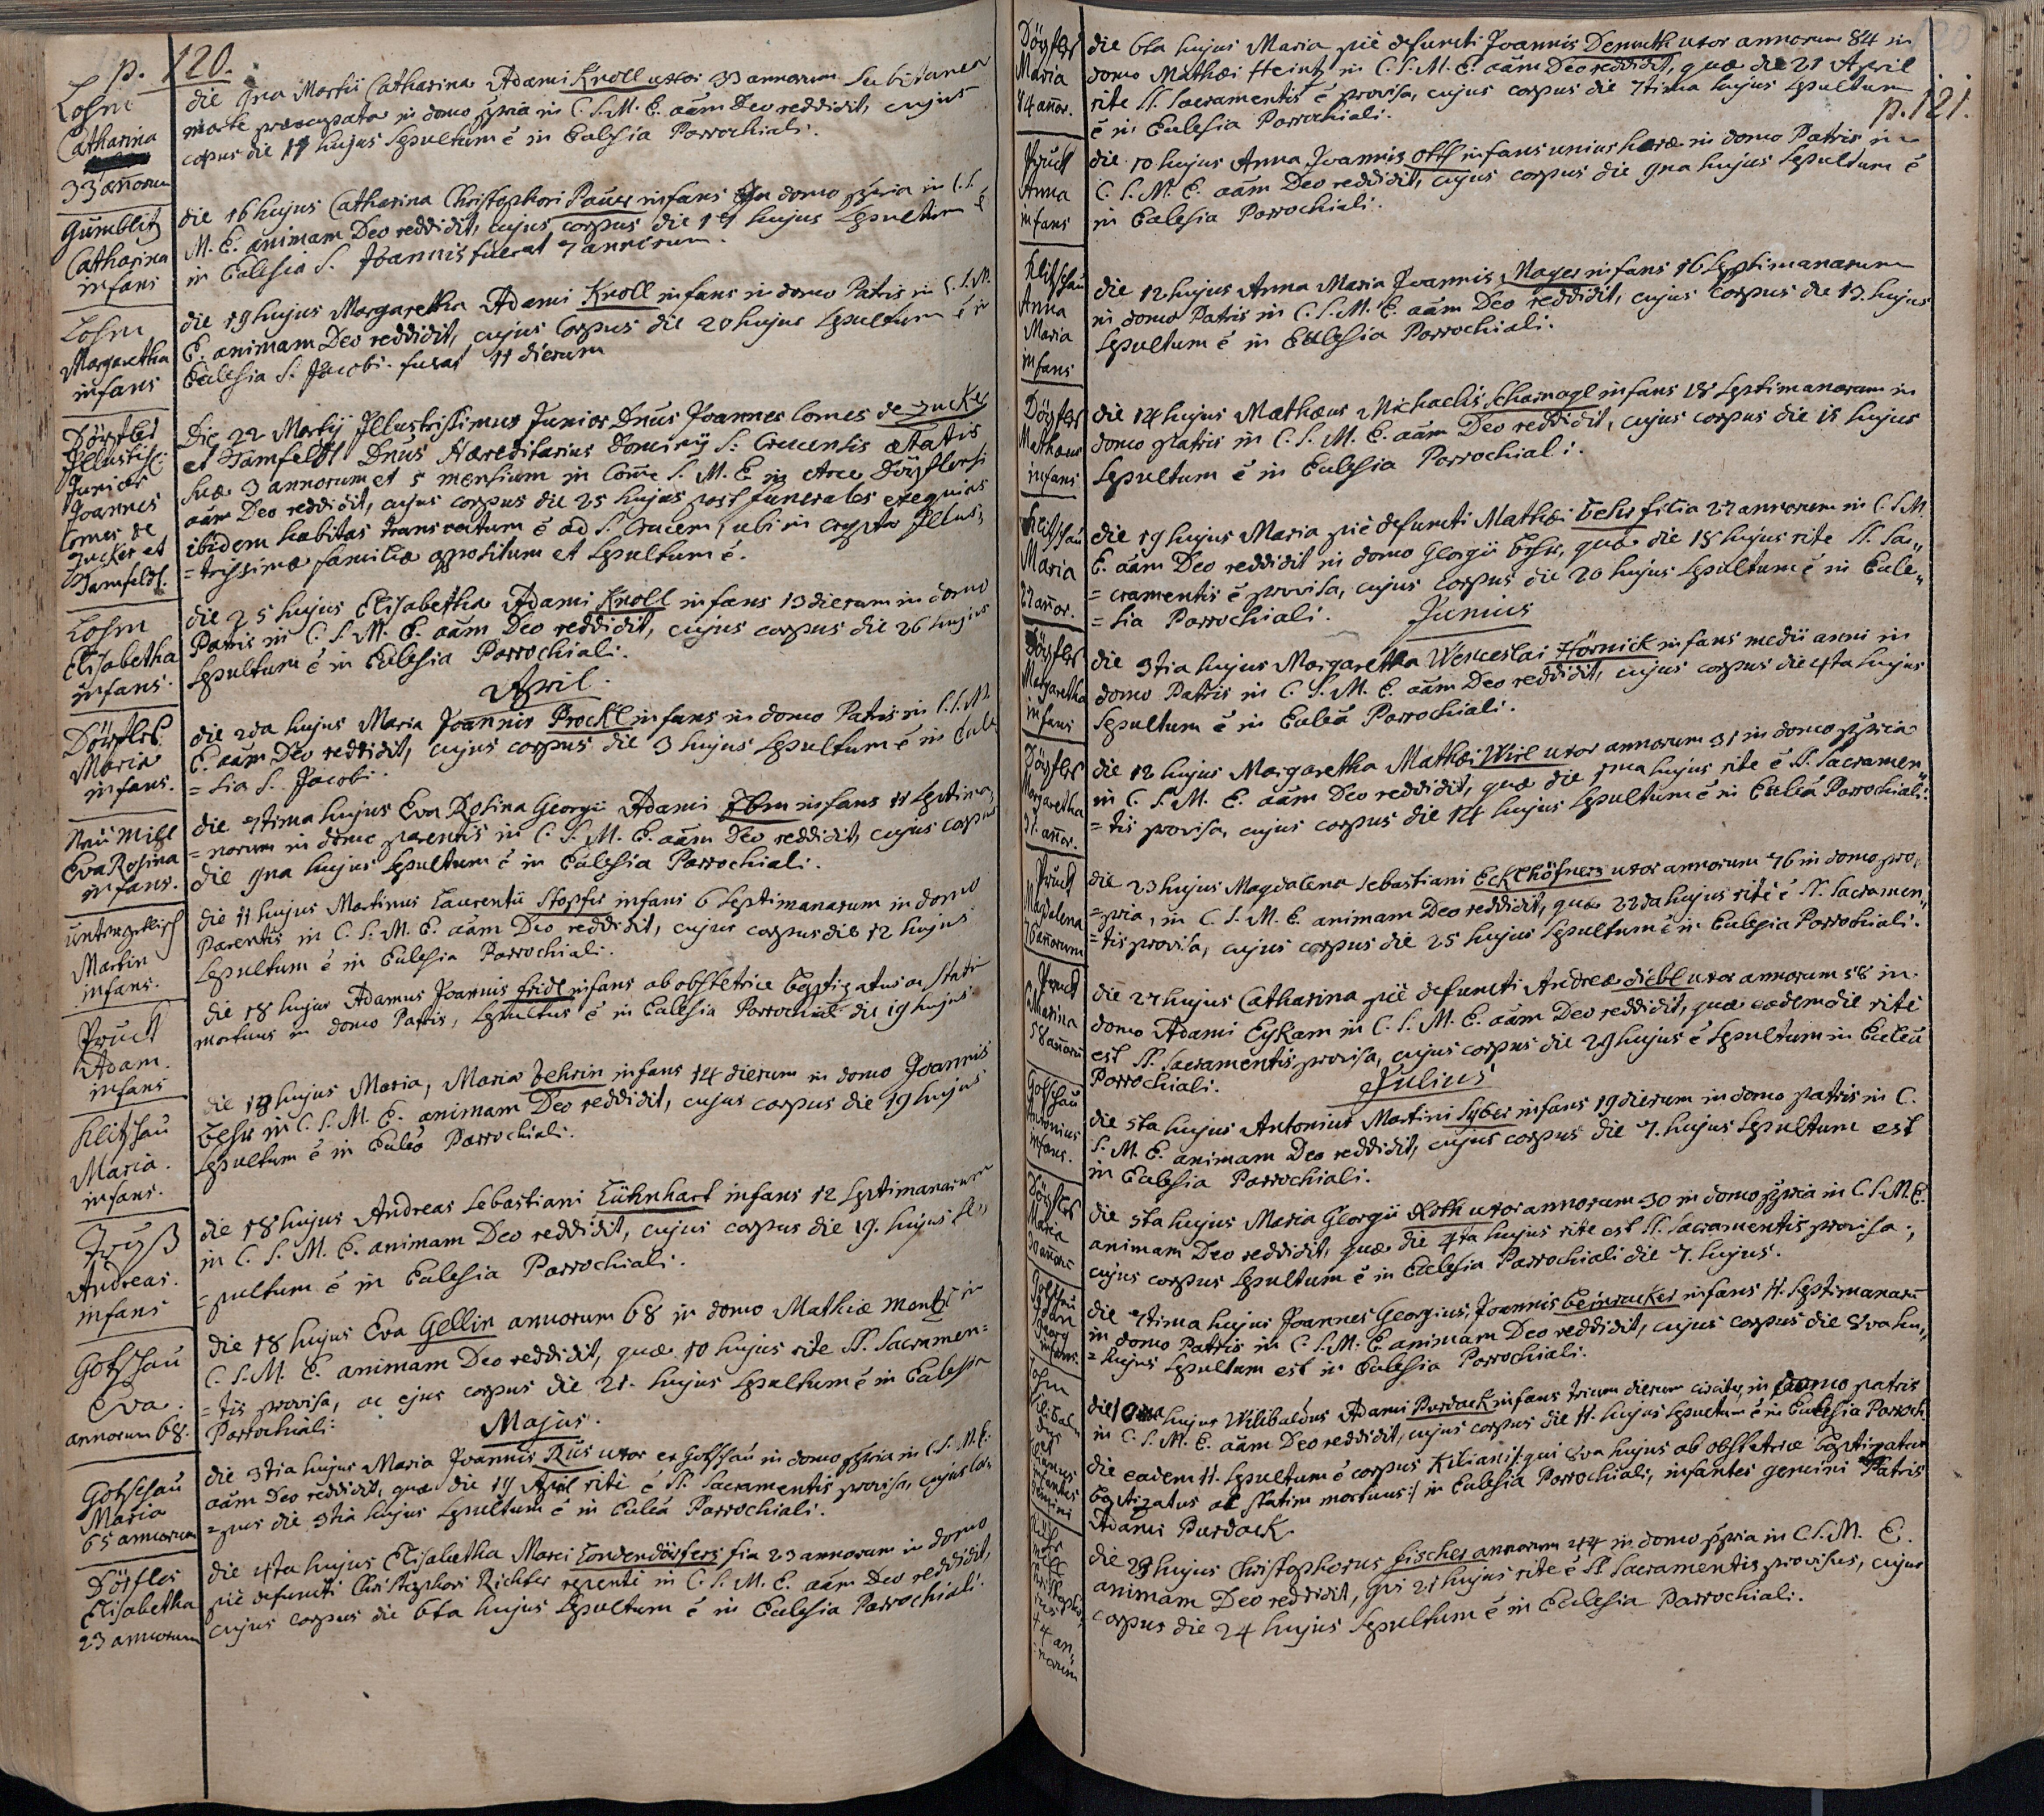 p. 120.
Losin
Catharina
33 añorum
die 9na Martii Catharina Adami Knoll uxor 33 annorum subitanea
morte praeoccupata in domo ppria in C. S. M. E. aãm Deo reddidit, cujus
copus die 11 hujus sepultum ẽ in Eclesia Parrochiali.
Gumblitz
Catharina
infans
die 16 hujus Catharina Christophori Pauer infans in domo ppria in C. S.
M. E. animam Deo reddidit, cujus corpus die 17 hujus sepultum ẽ
in Eclesia S. Joannis fuerat 7 annorum.
Losin
Margaretha
infans
die 19 hujus Margaretha Adami Knoll infans in domo Patris in C. S. M.
E. animam Deo reddidit, cujus Corpus die 20 hujus sepultum ẽ in
Eclesia S. Jacobi. fuerat 11 dierum
Dörfles
Illustriss:
Junior
Joannes
Comes de
Zucker et
Tamfeldt.
Die 22 Martij Illustrissimus Junior Dnus Joannes Comes de Zucker
et Tamfeldt Dnus Haereditarius Dominij S: Crucensis aetatis
suae 3 annorum et 5 mensium in Com̃e S. M. E. in Arce Dörflensi
aãm Deo reddidit, cujus corpus die 25 hujus post funerales exequias
ibidem habitas transvectum ẽ ad S. Crucem, ubi in crypta Illus,,
=trissimae familiae appositum et sepultum ẽ.
Losin
Elisabetha
infans.
die 25 hujus Elisabetha Adami Knoll infans 13 dierum in domo
Patris in C. S. M. E. aãm Deo reddidit, cujus corpus die 26 hujus
sepultum ẽ in Eclesia Parrochiali.
April.
Dörfles
Maria
infans.
die 2da hujus Maria Joannis Prockl infans in domo Patris in C. S. M.
E. aãm Deo reddidit, cujus corpus die 3 hujus sepultum ẽ in Ecle
=sia S. Jacobi.
Neu Mihl
Eva Rosina
infans.
die 7tima hujus Eva Rosina Georgii Adami infans 11 septima,,
=norum in domo parentis in C. S. M. E. aãm Deo reddidit, cujus corpus
die 9na hujus sepultum ẽ in Eclesia Parrochiali.
Martin
infans.
die 11 hujus Martinus Laurentii Stopfer infans 6 septimanarum in domo
Parentis in C. S. M. E. aãm Deo reddidit, cujus corpus die 12 hujus
sepultum ẽ in Eclesia Parrochiali.
Pruck
Adam.
infans
die 18 hujus Adamus Joannis Fridl infans ab obstetrice baptizatus ac stati
mortuus in domo Patris, sepultus ẽ in Eclesia Parrochiali die 19 hujus
Klitschau
Maria.
infans.
die 18 hujus Maria, Maria Fehrin infans 14 dierum in domo Joannis
Fehr in C. S. M. E. animam Deo reddidit, cujus corpus die 19 hujus
sepultum ẽ in Eclea Parrochiali.
Andreas.
infans
die 18 hujus Andreas Sebastiani Kühnhart infans 12 septimanarum
in C. S. M. E. animam Deo reddidit, cujus corpus die 19. hujus se
=pultum ẽ in Eclesia Parrochiali.
Gotschau
Eva.
annorum 68.
die 18 hujus Eva Gellin annorum 68 in domo Mathiae Mentz in
C. S. M. E. animam Deo reddidit, quae 10 hujus rite SS. Sacramen=
=tis provisa, ac ejus corpus die 21. hujus sepultum ẽ in Eclesia
Parrochiali.
Majus.
Gotschau
Maria
65 annorum
die 3tia hujus Maria Joannis Riis uxor ex Gotschau in domo ppria in C. S. M. E.
aãm Deo reddidit, quae die 19 April rite ẽ SS. Sacramentis provisa, cujus cor,,
=pus die 3tia hujus sepultum ẽ in Eclea Parrochiali.
Dörfles
Elisabetha
23 annorum
die 4ta hujus Elisabetha Marci Tondendörfers fia 23 annorum in domo
pie defuncti Christophori Richter repente in C. S. M. E. aãm Deo reddidit,
cujus corpus die 6ta hujus sepultum ẽ in Eclesia Parrochiali.
p. 121.
Dörfles
Maria
84 añor.
die 6ta hujus Maria pie defuncti Joannis Demuth uxor annorum 84 in
domo Mathaei Heintz in C. S. M. E. aãm Deo reddidit, quae die 21 April
rite SS. Sacramentis ẽ provisa, cujus corpus die 7tima hujus sepultum
ẽ in Eclesia Parrochiali.
Pruck
Anna
infans
die 10 hujus Anna Joannis Ott infans unius horae in domo Patris in
C. S. M. E. aãm Deo reddidit, cujus corpus die 9na hujus sepultum ẽ
in Eclesia Parrochiali.
Klitschau
Anna
Maria
infans
die 12 hujus Anna Maria Joannis Mayer infans 16 septimanarum
in domo Patris in C. S. M. E. aãm Deo reddidit, cujus corpus die 13. hujus
sepultum ẽ in Eclesia Parrochiali.
Dörfles
Mathaeus
infans
die 14 hujus Mathaeus Michaelis Scharnagl infans 18 septimanarum in
domo patris in C. S. M. E. aãm Deo reddidit, cujus corpus die 15 hujus
sepultum ẽ in Eclesia Parrochiali.
Klitschau
Maria
22 añor.
die 19 hujus Maria pie defuncti Mathaei Fehr filia 22 annorum in C. S. M.
E. aãm Deo reddidit in domo Georgii Fehr, quae die 18 hujus rite SS. Sa,,
=cramentis ẽ provisa, cujus corpus die 20 hujus sepultum ẽ in Ecle,,
=sia Parrochiali.
Junius
Dörfles
Margaretha
infans
die 3tia hujus Margaretha Wenceslai Hörnick infans medii anni in
domo Patris in C. S. M. E. aãm Deo reddidit, cujus corpus die 4ta hujus
sepultum ẽ in Eclea Parrochiali.
Dörfles
Margaretha
31 añor.
die 12 hujus Margaretha Mathaei Wirl uxor annorum 31 in domo ppria
in C. S. M. E. aãm Deo reddidit, quae die hujus rite ẽ SS. Sacramen,,
=tis provisa, cujus corpus die 14 hujus sepultum ẽ in Eclea Parrochiali.
Pruck
Magdalena
76 añorum
die 23 hujus Magdalena Sebastiani Ecklhöfners uxor annorum 76 in domo pro,,
=pria, in C. S. M. E. animam Deo reddidit, quae 22da hujus rite ẽ SS. Sacramen,,
=tis provisa, cujus corpus die 25 hujus sepultum ẽ in Eclesia Parrochiali.
Pruck
58 añorũ
die 27 hujus Catharina pie defuncti Andreae Diebl uxor annorum 58 in
domo Adami Eykam in C. S. M. E. aãm Deo reddidit, quae eodem die rite
est SS. Sacramentis provisa, cujus corpus die 29 hujus ẽ sepultum in Eclea
Parrochiali.
Julius
Gotschau
Antonius
infans.
die 5ta hujus Antonius Martini Syber infans 19 dierum in domo patris in C.
S. M. E. animam Deo reddidit, cujus corpus die 7. hujus sepultum est
in Eclesia Parrochiali.
Dörfles
Maria
30 añor
die 5ta hujus Maria Georgii Roth uxor annorum 30 in domo ppria in C. S. M. E.
animam Deo reddidit, quae die 4ta hujus rite est SS. Sacramentis provisa,
cujus corpus sepultum ẽ in Eclesia Parrochiali die 7. hujus.
Gotschau
Joan
Georg
infans.
die 7tima hujus Joannes Georgius, Joannis Beinracker infans 11. septimanarũ
in domo Patris in C. S. M. E. animam Deo reddidit, cujus corpus die 8va hu,,
=hujus sepultum est in Eclesia Parrochiali.
Losin
Wilibal
dus
et
Kilianus
infantes
gemini
die 10ma hujus Wilibaldus Adami Purdack infans trium dierum circiter, in domo patris
in C. S. M. E. aãm Deo reddidit, cujus corpus die 11. hujus sepultum ẽ in Eclesia Parroch.
die eadem 11. sepultum ẽ corpus Kiliani /: qui 8va hujus ab obstetrice baptizatur
baptizatus ac statim mortuus :/ in Eclesia Parrochiali, infantes gemini Patris
Adami Purdack.
Christopho,,
rus
44 an,,
norum
die 23 hujus Christophorus Fischer annorum 44 in domo ppria in C. S. M. E.
animam Deo reddidit, qui 21 hujus rite ẽ SS Sacramentis provisus, cujus
corpus die 24 hujus sepultum ẽ in Eclesia Parrochiali.